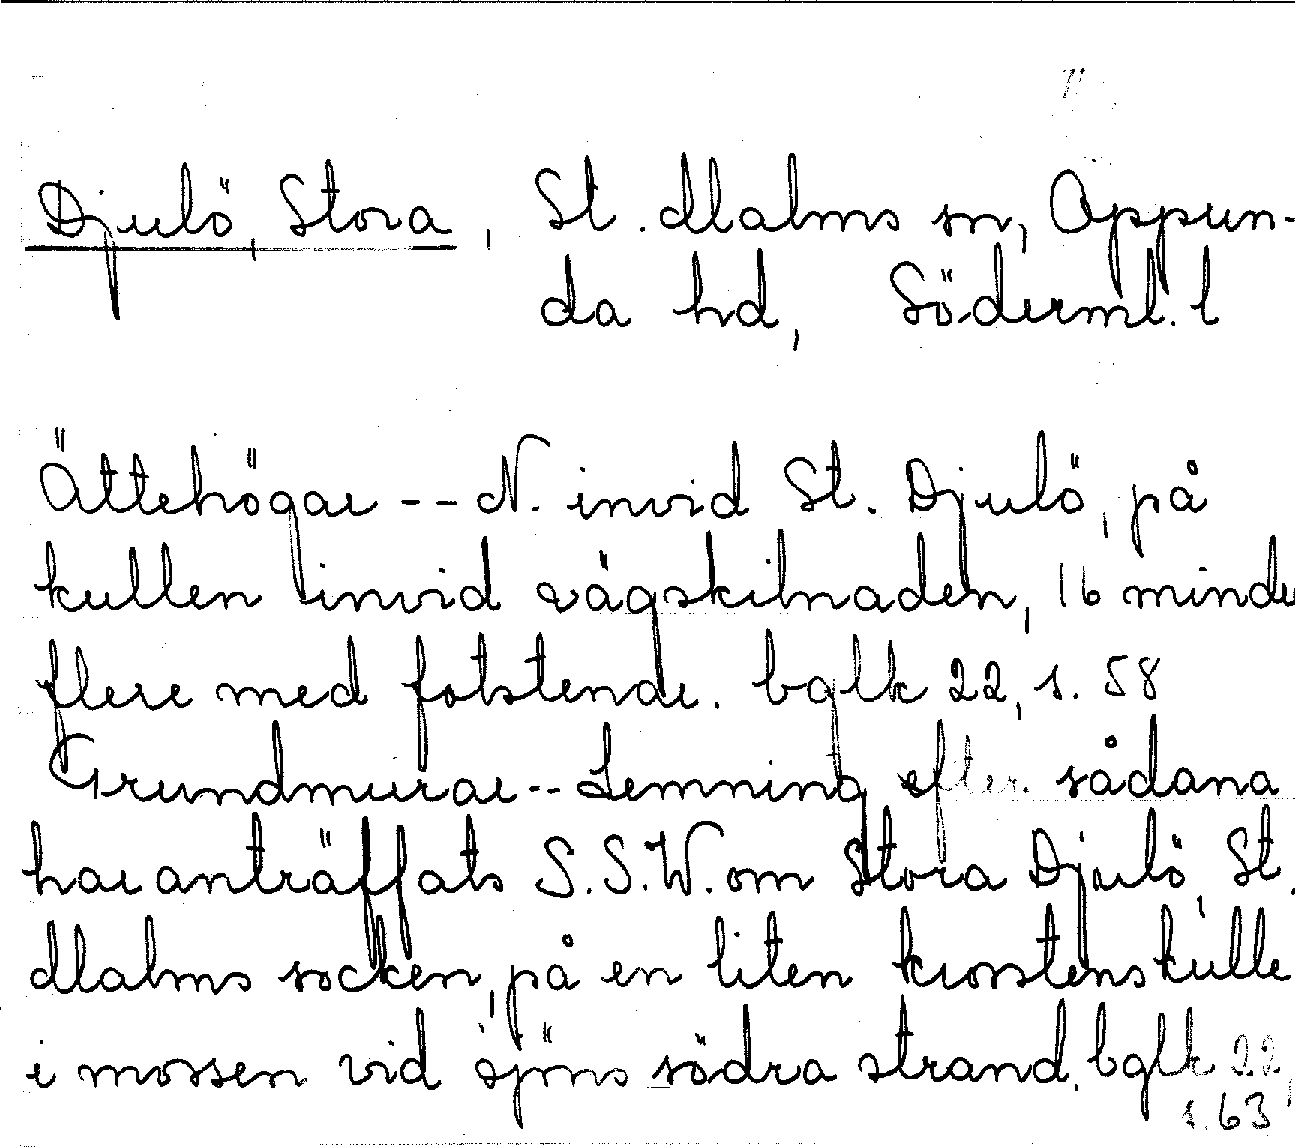 Djulö, Stora, St. Malms sn, Oppun-
da hd, Söderml. l
Ättehögar -- N. invid St. Djulö, på
kullen invid vägskilnaden, 16 mindre
flere med fotstenar. bglk 22, s. 58
Grundmurar -- Lemning efter sådana
har anträffats S.S.W. om Stora Djulö, St.
Malms socken, på en liten krosstenskulle
i mossen vid sjöns södra strand. bglk 22,
s. 63